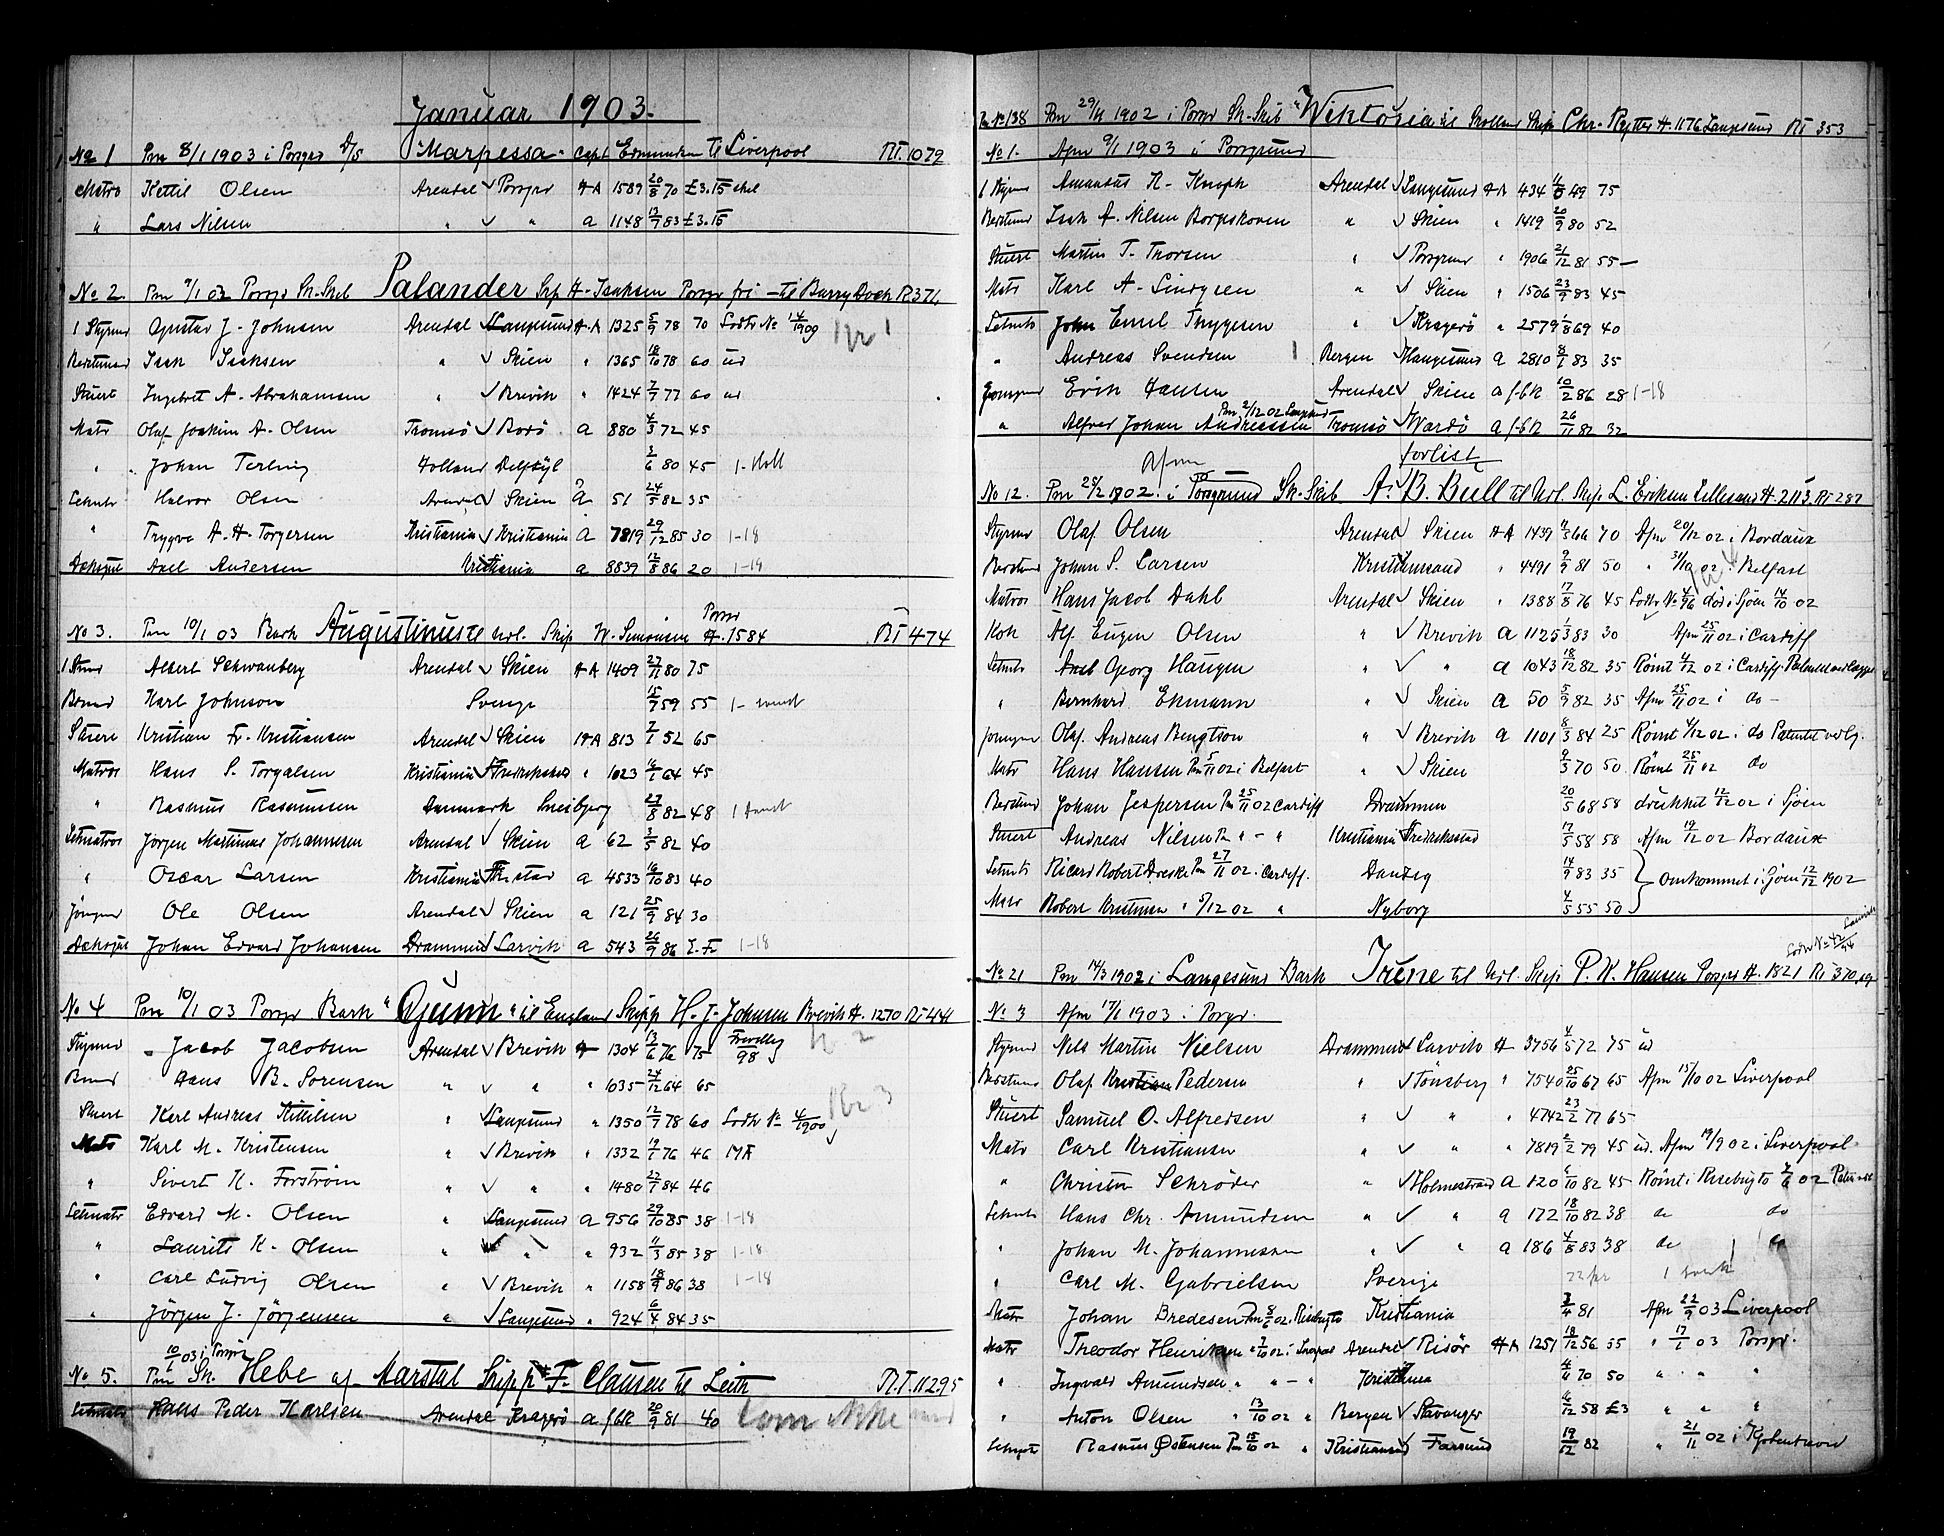 Januar 1903.
No 1 Pm 8/1 1903 i Porsgr D/S Marpessa Capt Edmundsen til Liverpool RT. 1079
Matro Kettil Olsen Arendal Porsgr HA 1589 20/8 70 £3.15
" Lars Nilsen " " a 1148 13/9 83 £3.15
No 2 Pm 9/1 03 Porsgr Sk. Skib Palander Skp H. Isaksen Porsgr fri - til Barry Dock
1 Styrmd Gustav J. Johnsen Arendal Langesund HA 1325 5/9 78 70 Lodtr No 14/1909
Isak Isaksen " Skien " 1365 18/10 78 60 ud
Stuert Ingebret A. Abrahamsen " Brevik " 1424 7/7 77 60 ud
Matr Olaf Joakim A. Olsen Tromsö Bodö a 880 4/3 72 45
" Johan Terling Holland Delfzyl 3/6 80 45 1-Holl
Letmtr Halvor Olsen Arendal Skien a 51 24/5 82 35
" Trygve A. H. Torgersen Kristiania Kristiania a 7819 29/12 85 30 1-18
Axel Andersen Kristiania a 8839 12/8 86 20 1-19
No 3. Pm 10/1 03 Bark Augustinus til Skip W. Simonsen Porsgr H. 1584 RT 474
1 Strmd Albert Schwanberg Arendal Skien HA 1409 27/11 80 75
Karl Johnson Sverge 15/9 59 55
Stuert Kristian Fr. Kristiansen Arendal Skien HA 813 7/1 52 65
Matros Hans P. Torgalsen Kristiania Fredrikshald " 1023 16/1 64 45
" Rasmus Rasmussen Danmark 27/8 82 48
Letmatros Jörgen Martinius Johannesen Arendal Skien a 62 3/5 82 40
" Oscar Larsen Kristiania a 4533 16/10 83 40
Jungmd Ole Olsen Arendal Skien a 121 25/9 84 30
Johan Edvard Johansen Drammen Larvik a 543 26/9 86 1-18
No 4 Pm 10/1 03 Porsgr Bark "Gunn" til England Skipp H. J. Johnsen Brevik H. 1270 RT 441
Styrmd Jacob Jacobsen Arendal Brevik H 1304 13/6 76 75
Hans B. Sorensen " " " 1035 24/12 64 65
Stuert Karl Andreas Kittilsen " Langesund " 1350 12/7 78 60 Lodtr No 4/1900
Matr Karl M. Kristensen " Brevik " 1332 19/1 76 46
" Sivert K. Forström " " " 1480 22/7 84 46
Letmatr Edvard M. Olsen " Langesund a 956 29/10 85 38 1-18
" Laurits K. Olsen " " " 932 11/3 85 38 1-18
" Carl Ludvig Olsen " Brevik " 1158 18/9 86 38 1-18
" Jörgen J. Jörgensen " Langesund " 924 6/4 84 35
10/1 03 i Porsgr
No 5. Pm Sk. Hebe af Marstal Skipp F. Clausen til Leith R.T. 112.95
Letmatr Hans Peder Karlsen Arendal Kragerö a 20/9 81 40 kom ikke med
No 138 Pm 29/11 1902 i Porsgr Sk. Skib Wiktoria til Skip Chr. H. 1176 Langesund RT 353
No 1. Afm 9/1 1903 i Porsgrund
1 Styrm Amandus N. Knoph Arendal Langesund HA 434 49 75
Isak A. Nilsen Borgeskoven " Skien " 1419 20/9 80 52
Stuert Martin T. Thorsen " Porsgrund " 1906 21/12 81 55
Matr Karl A. Lindgren " Skien " 1506 23/9 83 45
Letmtr John Emil Thygesen " Kragerö " 2579 1/8 69 40
" Andreas Svendsen Bergen Haugesund a 2810 8/1 83 35
Jungmd Erik Hansen Arendal Skien a 10/2 86 28 1-18
" Alfred Johan Andreassen Pm 2/12 02 Langesund Tromsö Wardö a 26/11 82 32
Afm forlist
No 12. Pm 28/2 1902 i Porsgrund Sk. Skib A. B. Bull til Skip. L. Eriksen Lillesand H. 2113 RT 287
Styrmd Olaf Olsen Arendal Skien HA 1439 66 70 Afm 20/12 02 i Bordaux
Johan S. Larsen Kristiansand " 4491 9/9 81 50 " 31/10 02 Belfast
Matros Hans Jacob Dahl Arendal Skien " 1388 17/8 76 45 Lodtr No 4/96 död i Sjöen 14/10 02
Kok Alf. Eugen Olsen " Brevik a 1125 1/3 83 30 Afm 25/11 02 i Cardiff
Letmtr Axel Georg Haugen " " a 1043 18/12 82 35 Römt 4/12 02 i Cardiff
" Bernhard Ekmann " Skien a 50 5/9 82 35 Afm 25/11 02 i do
Jungm Olaf Andreas Bengtson " Brevik a 1101 8/3 84 25 Römt 4/12 02 i do
Matr Hans Hansen Pm 5/11 02 i Belfast " Skien 9/3 70 50 Römt 25/11 02 do
Johan Jespersen Pm 25/11 02 Cardiff Drammen 20/5 68 58 drukket 12/12 02 i Sjöen
Stuert Andreas Nilsen Pm " - " Kristiania Fredrikstad 17/5 58 58 Afm 19/12 02 Bordaux
Letmtr Ricard Robert Dreske Pm 27/11 02 Cardiff. Danzig 14/9 83 35 Omkommet i Sjöen 12/12 1902
Matr Robert Kristensen " 3/12 02 " Nyborg 4/5 55 50
Lodtr No 42/94
No 21 Pm 14/3 1902 i Langesund Bark Irene til Skip P. K. Hansen Porsgr H. 1821 RT 370,09
No 3 Afm 17/1 1903 i Porsgr.
Styrmd Nils Martin Nielsen Drammen Larvik H 3756 4/5 72 75 ud
Olaf Kristian Pedersen " Tönsberg " 7540 25/10 67 65 Afm 15/10 02 Liverpool
Stuert Samuel O. Alfredsen " " " 4742 23/2 77 65
Matr Carl Kristiansen " " " 7819 2/2 79 45 ud. Afm 19/9 02 i Liverpool
" Christen Schröder " Holmestrand a 120 6/10 82 45 Römt i Risebugto 7/6 02
Letmtr Hans Chr. Amundsen " " a 172 18/10 82 38 do do
" Johan M. Johannessen " " a 186 4/8 83 38 do do
" Carl M. Gabrielsen Sverige
Matr Johan Bredesen Pm 8/6 02 Risebugto Kristiania 3/4 81 Afm 22/9 03 Liverpool
Matr Theodor Henriksen Arendal Risör HA 1251 18/12 56 55 " 17/1 03 Porsgr.
" Ingvald Amundsen " " - " Kristiania 4/4 70 50 " " "
" Anton Olsen " 13/10 02 " Bergen Stavanger 6/12 58 £3 " " "
Rasmus Östensen Pm 15/10 02 " Kristiansand Farsund 19/12 82 " 21/11 02 i Kjöbenhavn